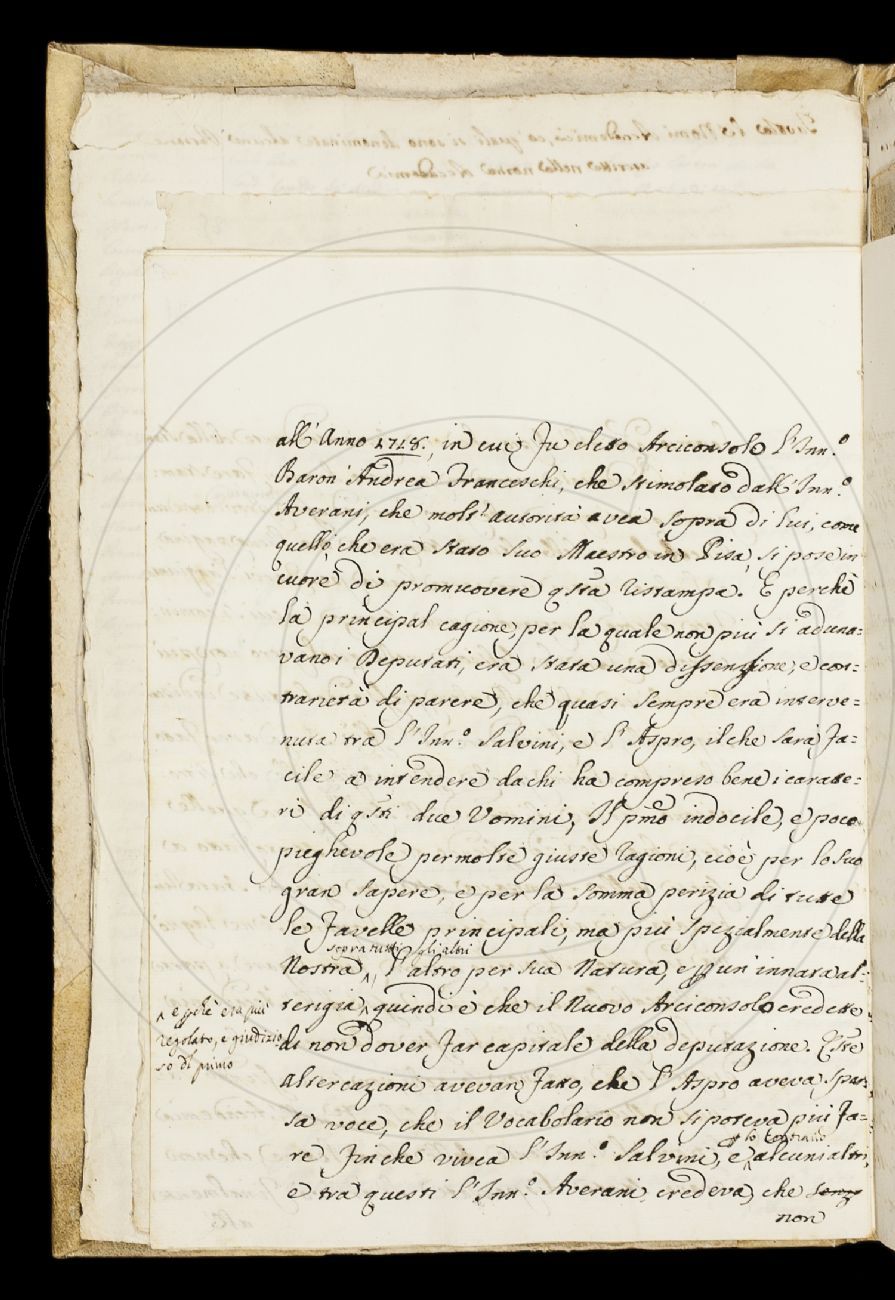 all'Anno 1718., in cui fu eletto Arciconsolo l'Inn.º
Baron' Andrea Franceschi, che stimolato dall'Inn.º
Averani, che molt' autorità avea sopra di lui, come
quello, che era stato suo Maestro in Pisa, si pose in
cuore di promuovere qsta ristampa. E perchè
la principal cagione, per la quale non più si aduna=
vano i Deputati, era stata una dissensione, e con=
trarietà di parere, che quasi sempre era interve=
nuta tra l'Inn.º Salvini, e l'Aspro, il che sarà fa=
cile a intendere da chi ha compreso bene i caratte=
ri di qsti due Uomini, Il pmo indocile, e poco
pieghevole per molte giuste ragioni, cioè per lo suo
gran sapere, e per la somma perizia di tutte
le favelle principali, ma più spezialmente della
sopra tutti gli altri
Nostra ^, l'altro per sua Natura, e p un'innata al=
terigia, ^ quindi è che il Nuovo Arciconsolo credette
^ e pchè era più
regolato, e giudizio
so dl primo
di non dover far capitale della deputazione. Qste
altercazioni avevan fatto, che l'Aspro aveva spar=
sa voce, che il Vocabolario non si poteva più fa=
re finchè vivea l'Inn.º Salvini, e ^ alcuni altri,
p lo contrario
e tra questi l'Inn.º Averani credeva, che senza
non